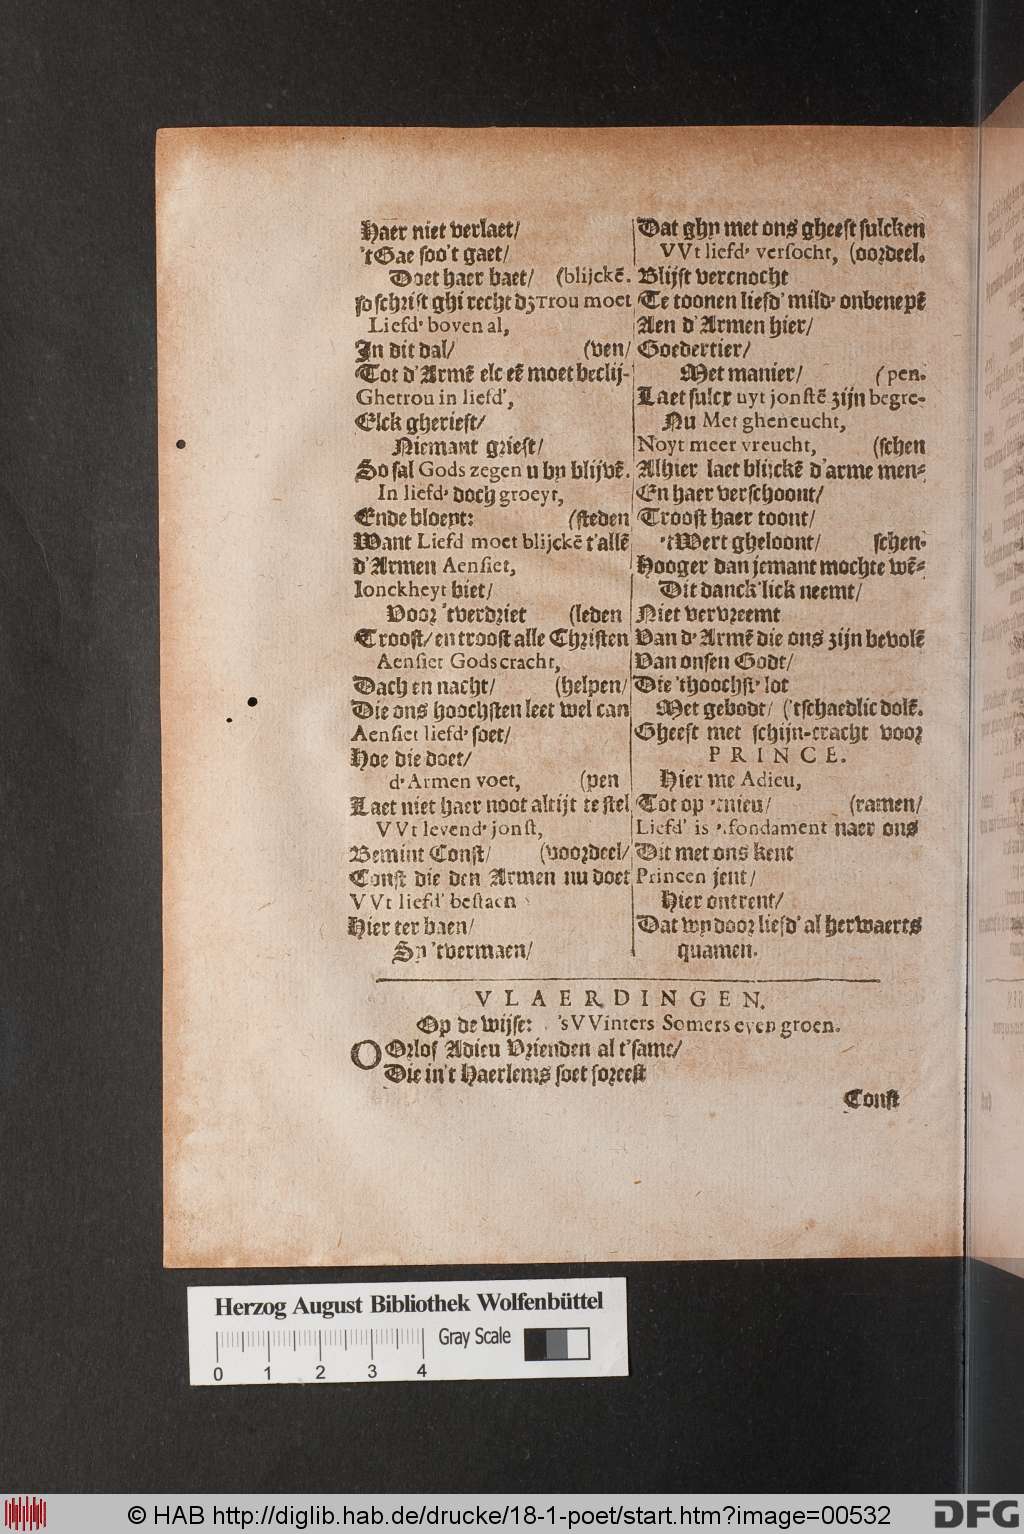 Haer niet verlaet/
'tGae soo't gaet/
Doet haer baet/ (blijckē.
so schrift ghi recht dz Trou moet
Liefd' boven al,
In dit dal/ (ven/
Tot d'Armē elc eē moet beclij-
Ghetrou in liefd',
Elck gherieft/
Niemant grieft/
So sal Gods zegen u by blijvē.
In liefd' doch groeyt,
Ende bloept: (steden
Want Liefd moet blijckē t'allē
d'Armen Aensiet,
Ionckheyt biet/
Voor 'tverdriet (leden
Troost/ en troost alle Christen
Aensiet Gods cracht,
Dach en nacht/ (helpen/
Die ons hoochsten leet wel can
Aensiet liefd' soet/
Hoe die doet/
d'Armen voet, (pen
Laet niet haer noot altijt te stel
VVt levend' jonst,
Bemint Const/ (voordeel/
Const die den Armen nu doet
VVt liefd' bestaen
Hier ter baen/
Sy 'tvermaen/
Dat ghy met ons gheeft sulcken
VVt liefd' versocht, (oordeel.
Blijft verknocht
Te toonen liefd' mild' onbenepē
Aen d'Armen hier/
Goedertier/
Met manier/ (pen.
Laet sulcx uyt jonstē zijn begre-
Nu Met gheneucht,
Noyt meer vreucht, (schen
Alhier laet blijckē d'arme men-
En haer verschoont/
Troost haer toont/
'tWert gheloont/ schen-
Hooger dan jemant mochte wē-
Dit danck'lick neemt/
Niet vervreemt
Van d'Armē die ons zijn bevolē
Van onsen Godt/
Die 'thoochst' lot
Met gebodt/ ('tschaedlic dolē.
Gheeft met schijn-cracht voor
PRINCE.
Hier me Adieu,
Tot op 'tnieu/ (ramen/
Liefd' is 'tfondament naer ons
Dit met ons kent
Princen jent/
Hier ontrent/
Dat wy door liefd' al herwaerts
quamen.
VLAERDINGEN.
Op de wijse: 'sVVinters Somers even groen.
OOrlof Adieu Vrienden al t'same/
Die in't Haerlems soet foreest
Const
Herzog August Bibliothek Wolfenbüttel
Gray Scale
0 1 2 3 4
© HAB http://diglib.hab.de/drucke/18-1-poet/start.htm?image=00532
DFG